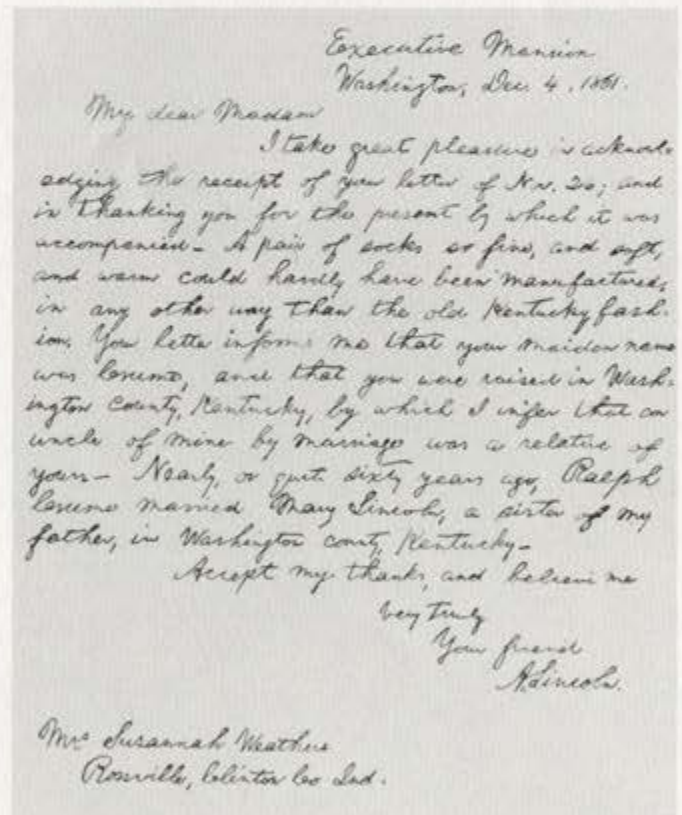 Executive Mansion
Washington, Dec. 4, 1861.
My dear Madam
I take great pleasure in acknowl-
edging the receipt of your letter of Nov. 20; and
in thanking you for the present by which it was
accompanied— A pair of socks so fine, and soft,
and warm could hardly have been manufactured
in any other way than the old Kentucky fash-
ion. Your letter informs me that your maiden name
was Crume, and that you were raised in Wash-
ington County, Kentucky, by which I infer that an
uncle of mine by marriage was a relative of
yours— Nearly, or quite sixty years ago, Ralph
Crume married Mary Lincoln, a sister of my
father, in Washington county, Kentucky—
Accept my thanks, and believe me
Very truly
Your friend
A. Lincoln.
Mrs Susannah Weathers
Rossville, Clinton Co Ind.